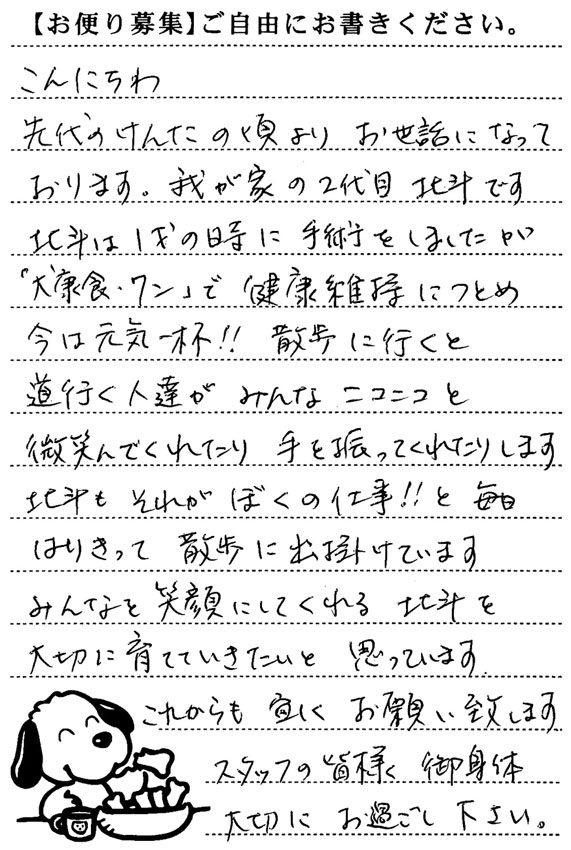 【お便り募集】ご自由にお書きください。
こんにちわ
先代のけんたの頃より お世話になって
おります。我が家の2代目 北斗です
北斗は1才の日時に 手術をしましたが
「犬康食・ワン」で 健康維持につとめ
今は元気一杯!! 散歩に行くと
道行く人達が みんな ニコニコと
微笑んでくれたり 手を振ってくれたりします
北斗も それが ぼくの仕事!!と 毎日
はりきって 散歩に出掛けています
みんなを笑顔にしてくれる 北斗を
大切に育てていきたいと 思っています
これからも 宜しく お願い致します
スタッフの皆様 御身体
大切に お過ごし下さい。